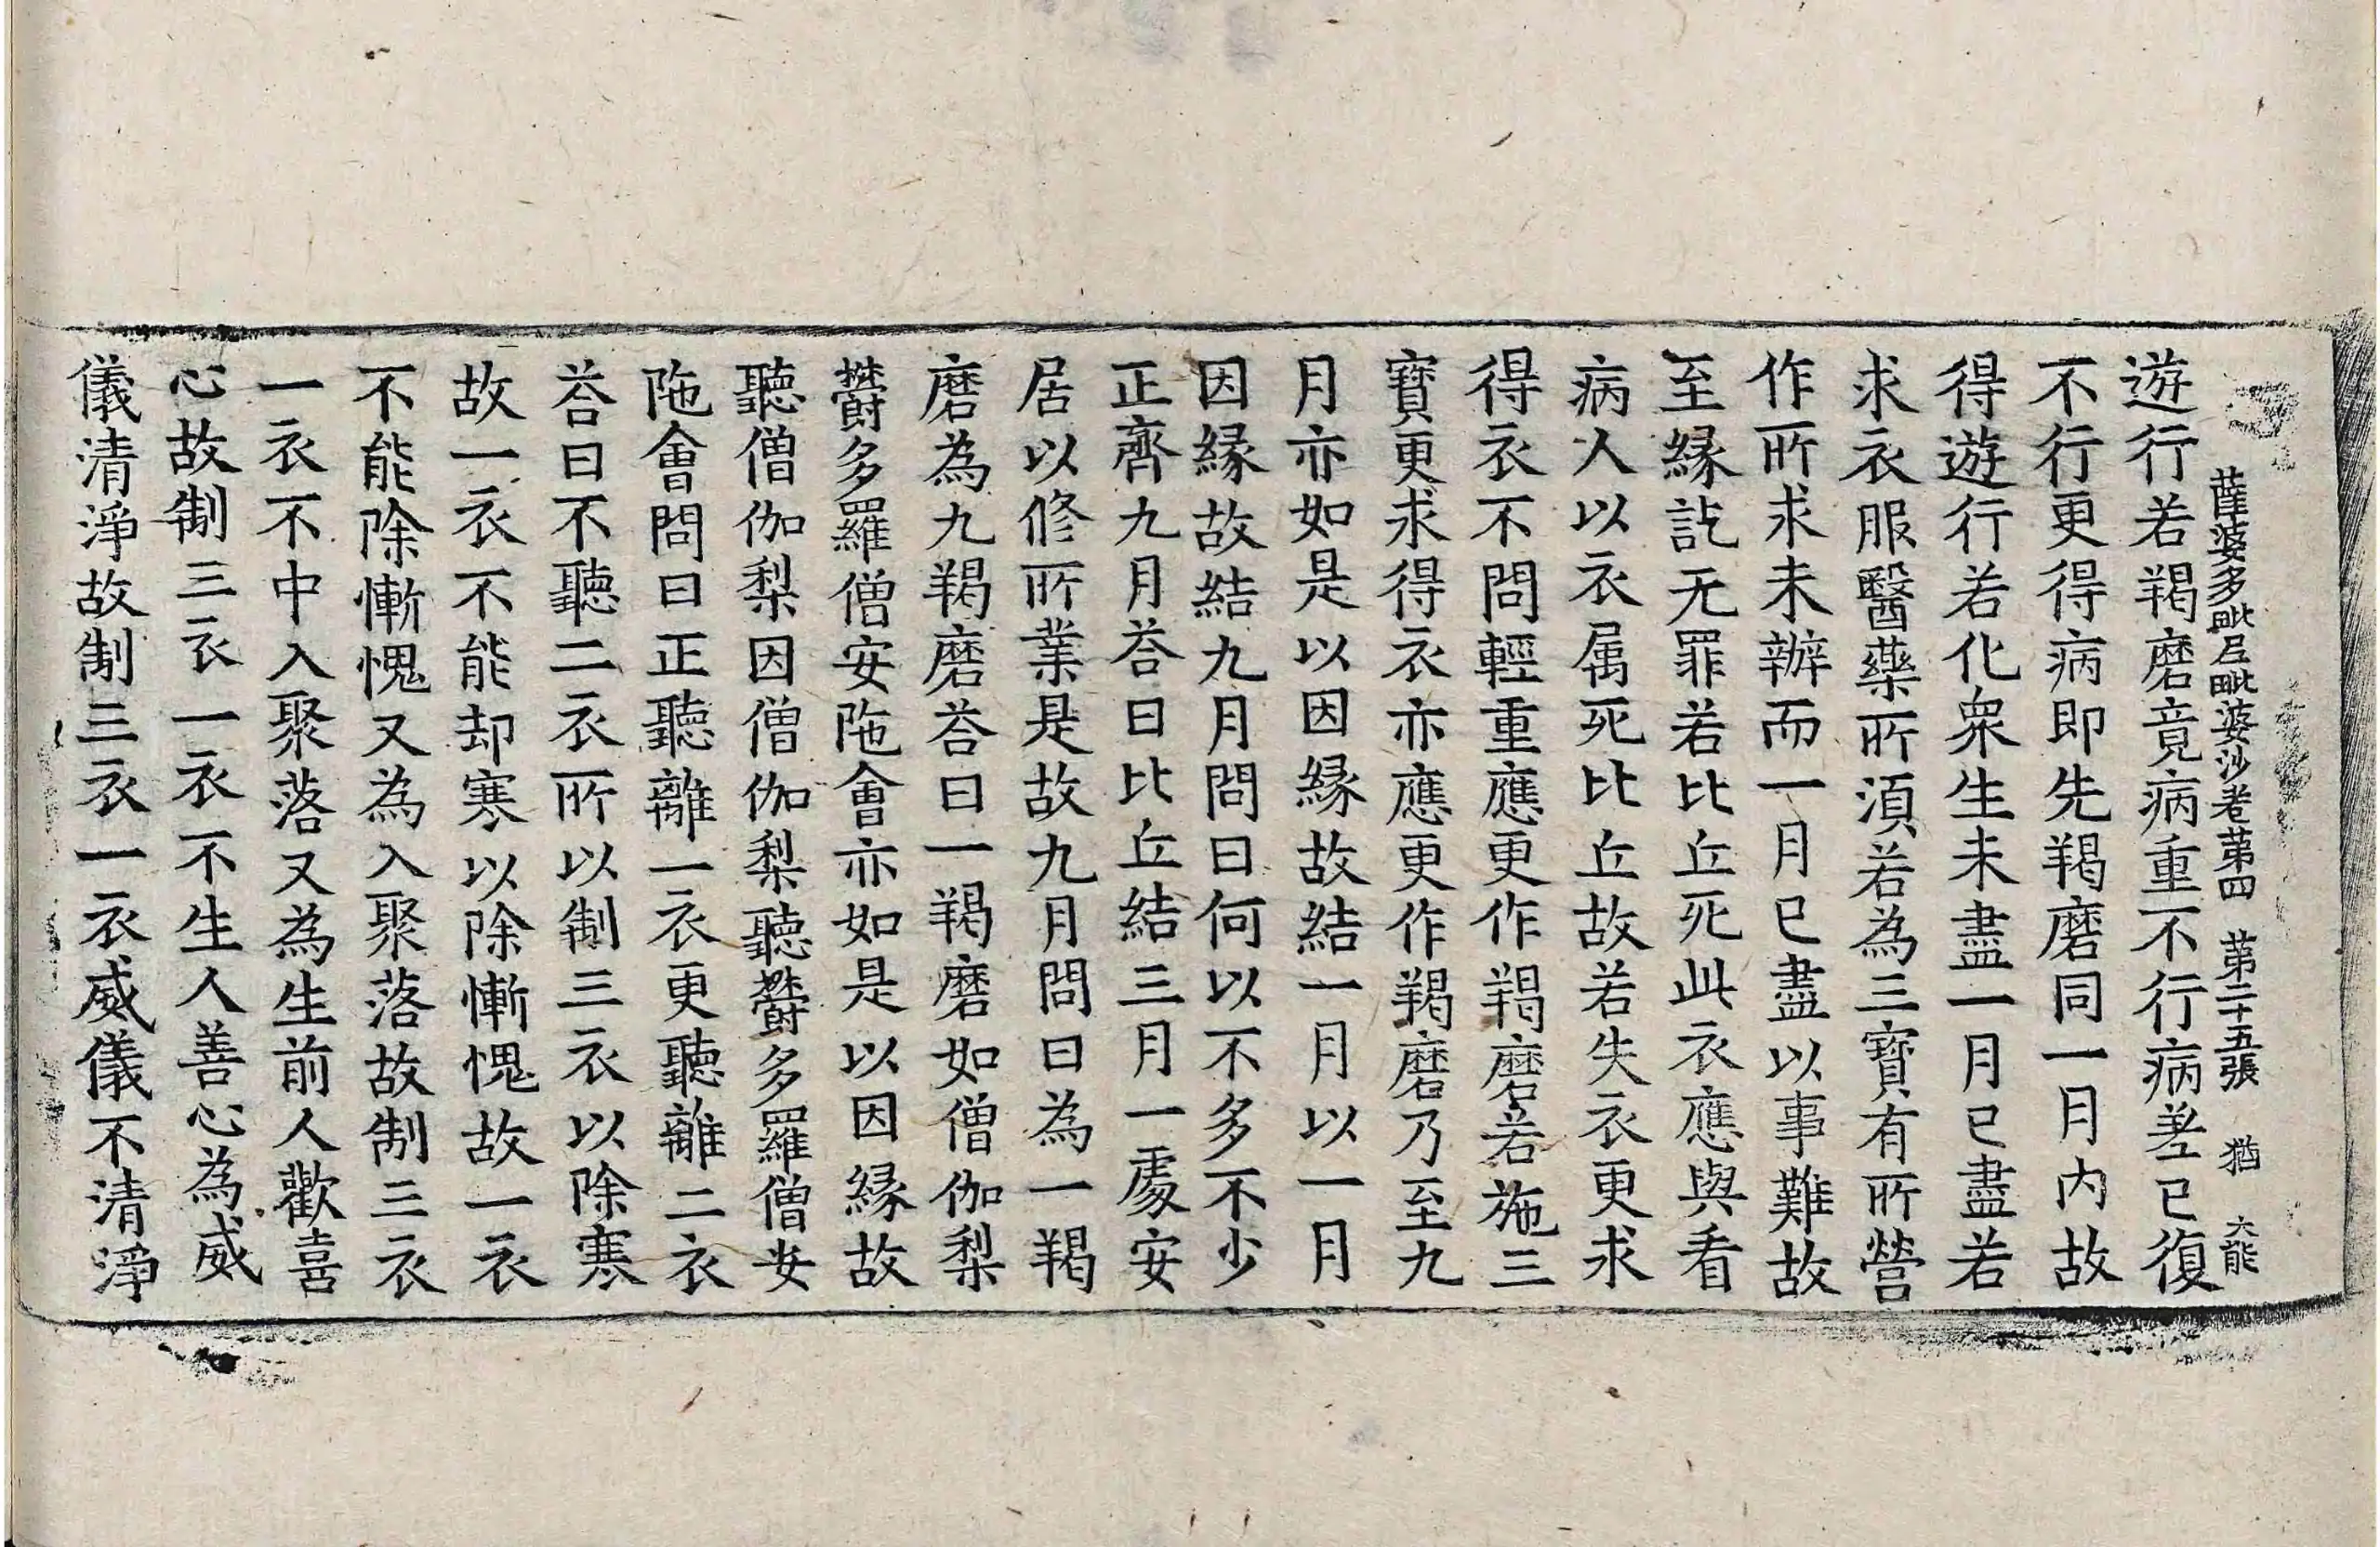 薩婆多毗尼毗婆沙卷第四 第二十五張 猶 大能
遊行若羯磨竟病重不行病差已復
不行更得病即先羯磨同一月内故
得遊行若化衆生未盡一月已盡若
求衣服醫藥所湏若為三寶有所營
作所求未辦而一月已盡以事難故
至緣訖无罪若比丘死此衣應與看
病人以衣屬死比丘故若失衣更求
得衣不問輕重應更作羯磨若施三
寶更求得衣亦應更作羯磨乃至九
月亦如是以因緣故結一月以一月
因緣故結九月問曰何以不多不少
正齊九月荅曰比丘結三月一處安
居以修所業是故九月問曰為一羯
磨為九羯磨荅曰一羯磨如僧伽梨
欝多羅僧安陁會亦如是以因緣故
聽僧伽梨因僧伽梨聽欝多羅僧安
陁會問曰正聽離一衣更聽離二衣
荅曰不聽二衣所以制三衣以除寒
故一衣不能却寒以除慚愧故一衣
不能除慚愧又為入聚落故制三衣
一衣不中入聚落又為生前人歡喜
心故制三衣一衣不生人善心為威
儀清淨故制三衣一衣威儀不清淨